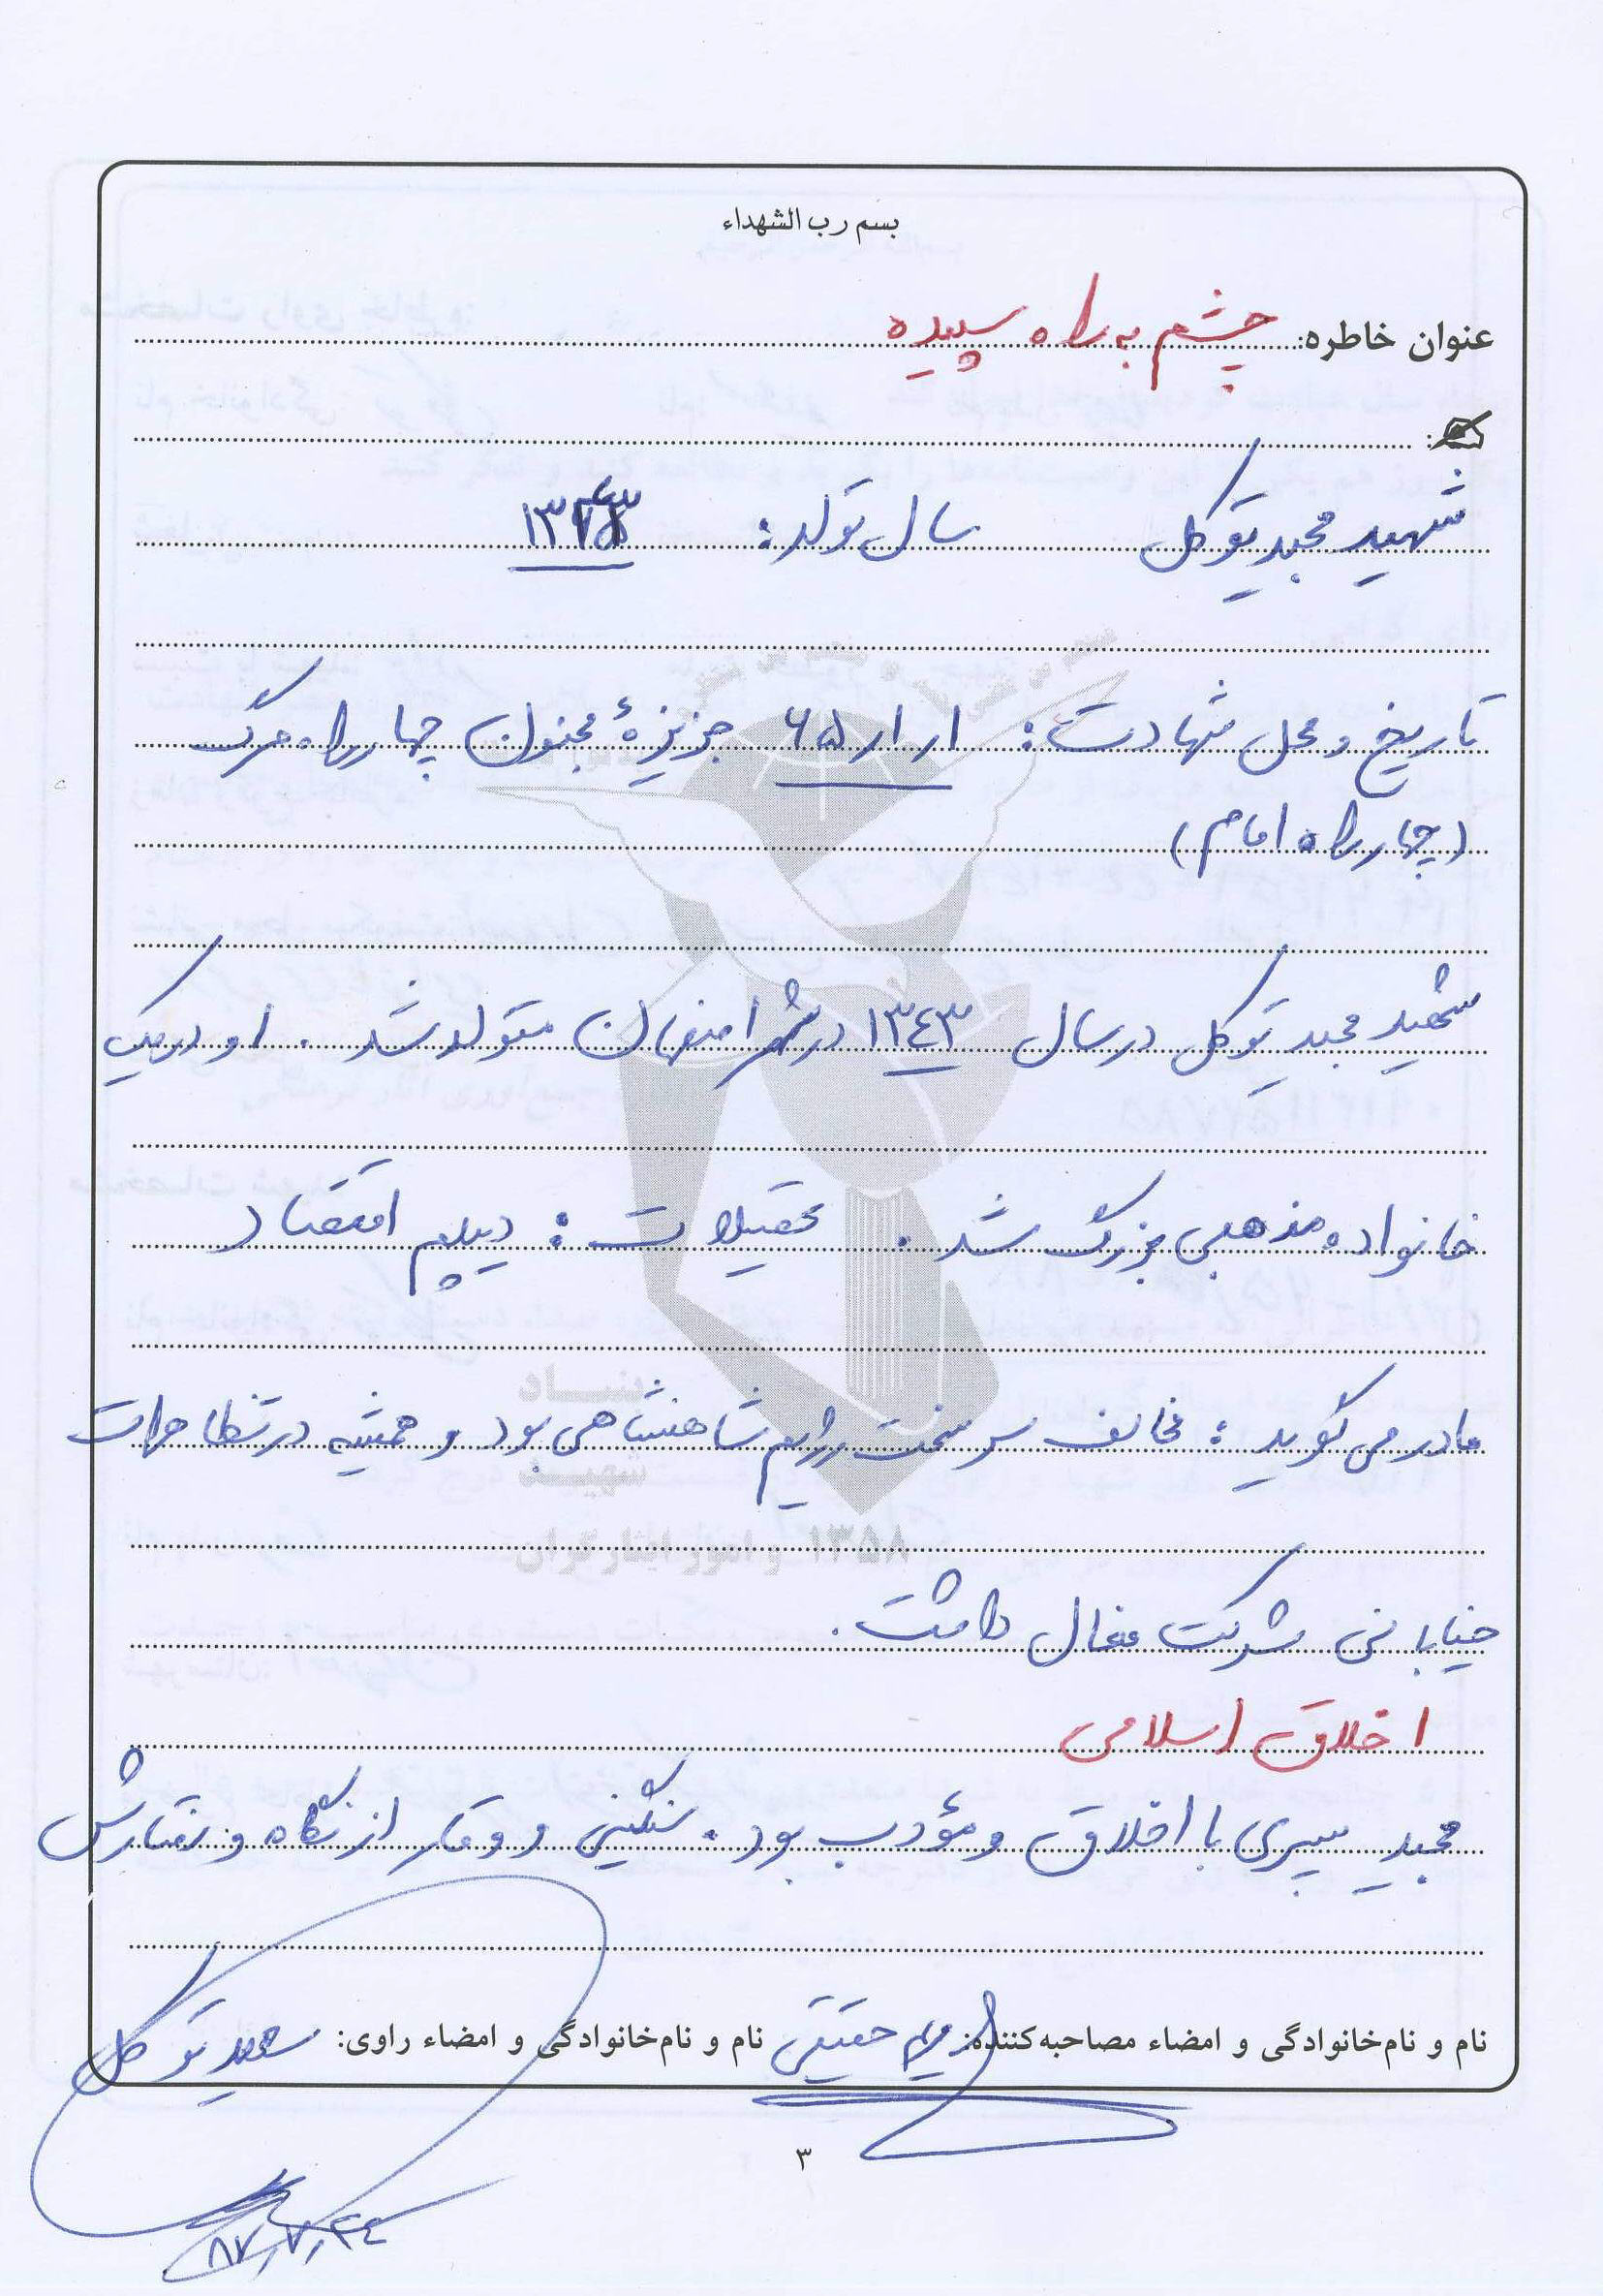 بسم رب الشهداء
عنوان خاطره: چشم به راه سپیده
شهید مجید توکل سال تولد: ۱۳۴۳
تاریخ و محل شهادت: ۶۵/۱/۱ جزیزهٔ مجنون چهارراه مرگ
(چهارراه امام)
شهید مجید توکل در سال ۱۳۴۳ در شهر اصفهان متولد شد. او در یک
خانواده مذهبی بزرگ شد. تحصیلات: دیپلم اقتصاد
مادر می گوید: مخالف سرسخت رژیم شاهنشاهی بود و همیشه در تظاهرات
خیابانی شرکت فعال داشت.
اخلاق اسلامی
مجید پسری با اخلاق و مؤدب بود. سنگینی و وقار از نگاه و رفتارش
نام و نام‌خانوادگی و امضاء مصاحبه‌کننده: مریم حقیقی نام و نام‌خانوادگی و امضاء راوی: سعید توکل
۳
۸۷/۷/۲۴
بنیاد
شهید
و امور ایثارگران ۱۳۵۸